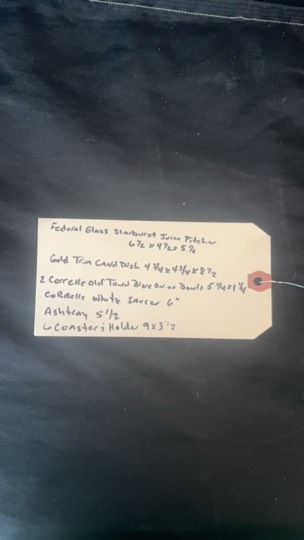 Federal Glass Starburst Juice Pitcher
6 1/2 x 4 1/2 x 5 1/2
Gold Trim Candi Dish 4 1/4 x 4 3/4 x 8 1/2
2 Correlle Old Town Blue Onion Bowls 5 1/4 x 1 1/4
CoRRelle White Saucer 6"
Ashtray 5 1/2
6 Coasters Holder 9 x 3 1/2